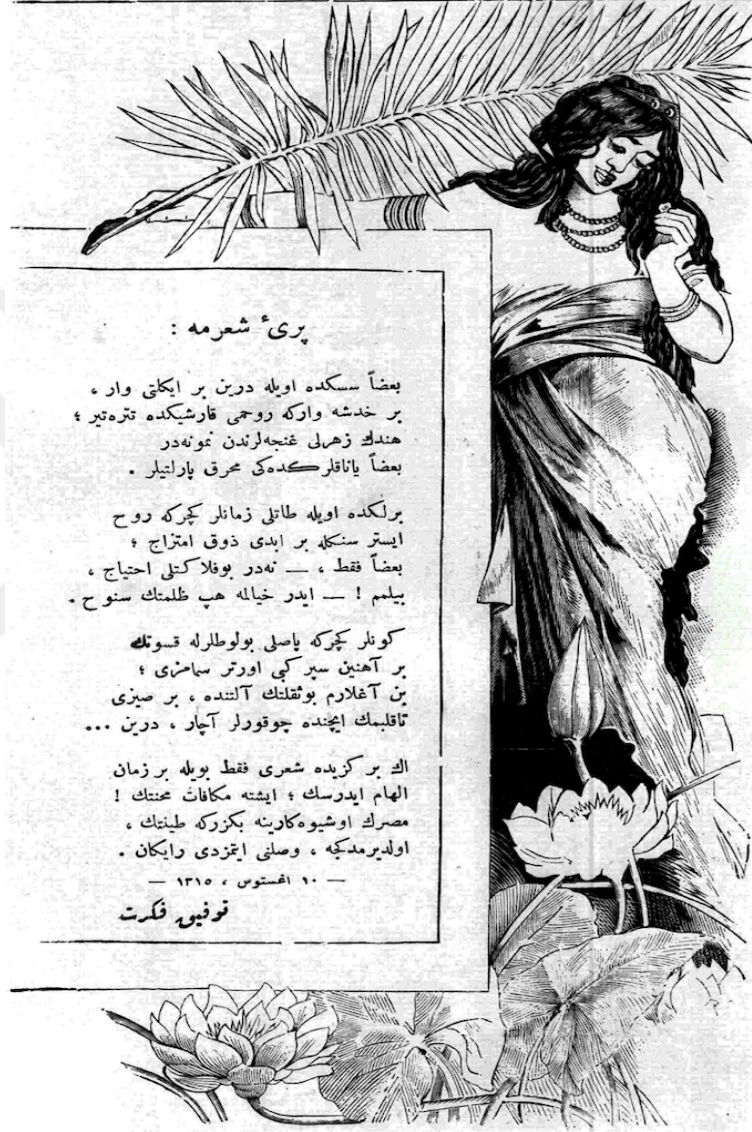 پریٔ شعرمه :
بعضاً سسكده اویله درین بر ایكلتی وار ،
بر خدشه واركه روحمی قارشیكده تتره‌تیر ؛
هندك زهرلی غنجه‌لرندن نمونه‌در
بعضاً یاناقلرڪده‌كی محرق پارلتیلر .
برلكده اویله طاتلی زمانلر كچركه روح
ایستر سنكله بر ابدی ذوق امتزاج ؛
بعضاً فقط ، — نه‌در بوفلاكتلی احتیاج ،
بیلمم ! — ایدر خیالمه هپ ظلمتك سنوح .
كونلر كچركه یاصلی بولوطلرله قسوتك
بر آهنین سپر كبی اورتر سمامزی ؛
بن آغلارم بوثقلتك آلتنده ، بر صیزی
تاقلبمك ایچنده چوقورلر آچار ، درین ...
اك بر كزیده شعری فقط بویله بر زمان
الهام ایدرسك ؛ ایشته مكافات محنتك !
مصرك اوشیوه‌كارینه بكزركه طینتك ،
اولدیرمدكجه ، وصلنی ایتمزدی رایكان .
— ١٠ اغستوس ، ١٣١٥ —
توفیق فكرت